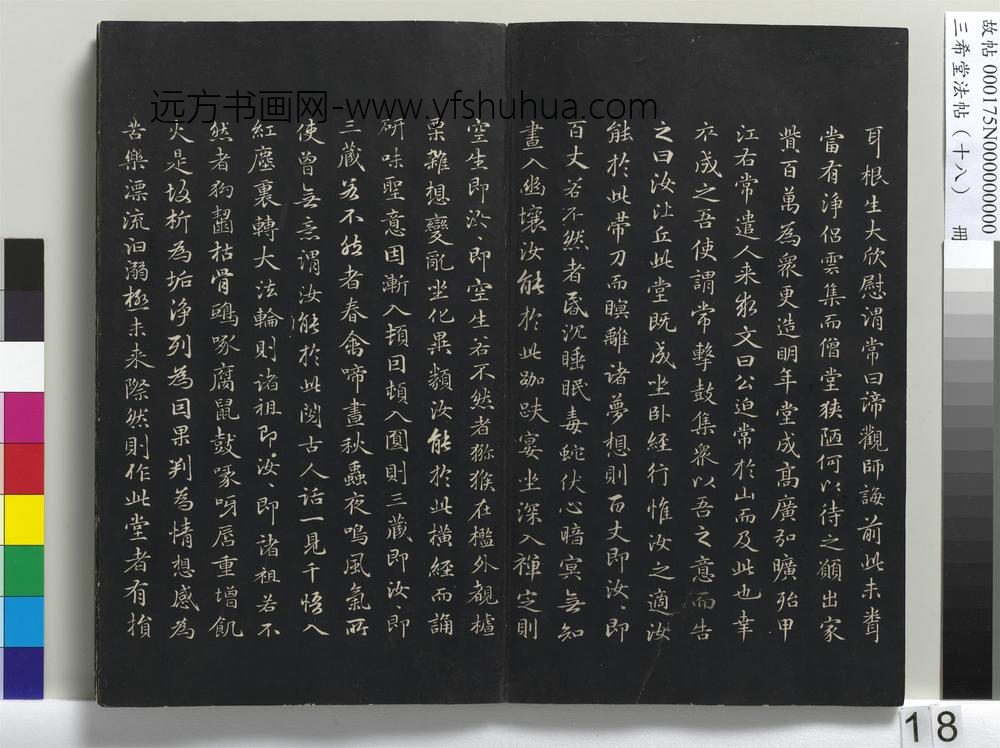 远方书画网-www.yfshuhua.com
故帖000175N000000000
三希堂法帖（十八） 冊
耳根生大欣慰謂常曰諦觀師誨前此未聞
當有淨侶雲集而僧堂狹陋何以待之願出家
貲百萬為衆更造明年堂成髙廣弘曠殆甲
江右常遣人来求文曰公迫常於山而及此也幸
卒成之吾使謂常擊鼓集衆以吾之意而告
之曰汝比丘此堂既成坐卧經行惟汝之適汝
能於此帶刀而瞑離諸夢想則百丈即汝、即
百丈若不然者昏沉睡眠毒蛇伏心暗冥無知
晝入幽壤汝能於此跏趺宴坐深入禪定則
空生即汝、即空生若不然者猕猴在檻外覩樝
栗雜想變亂坐化異類汝能於此横經而誦
研味聖意因漸入頓因頓入圓則三蔵即汝、即
三蔵若不然者春禽啼晝秋蟲夜鳴風氣所
使曾無意謂汝能於此閱古人話一見千悟入
紅塵裏轉大法輪則诸祖即汝、即諸祖若不
然者狗齧枯骨鴟啄腐鼠鼓喙呀唇重增飢
火是故析為垢淨列為因果判為情想感為
苦樂漂流汩溺極未来際然則作此堂者有損
18